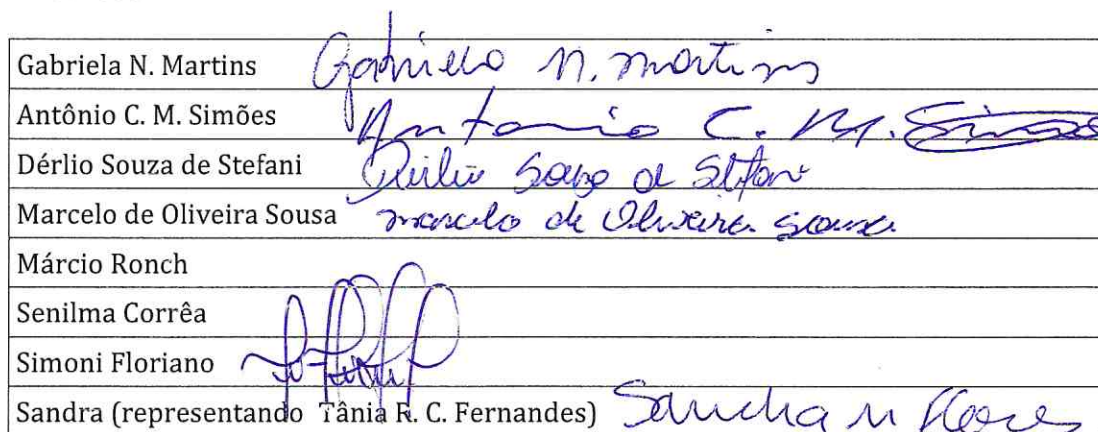 Gabriela N. Martins Gabriela N. Martins
Antônio C. M. Simões Antonio C. M. Simões
Dérlio Souza de Stefani Dérlio Souza de Stefani
Marcelo de Oliveira Sousa Marcelo de Oliveira Sousa
Márcio Ronch
Senilma Corrêa
Simoni Floriano
Sandra (representando Tânia R. C. Fernandes) Sandra M